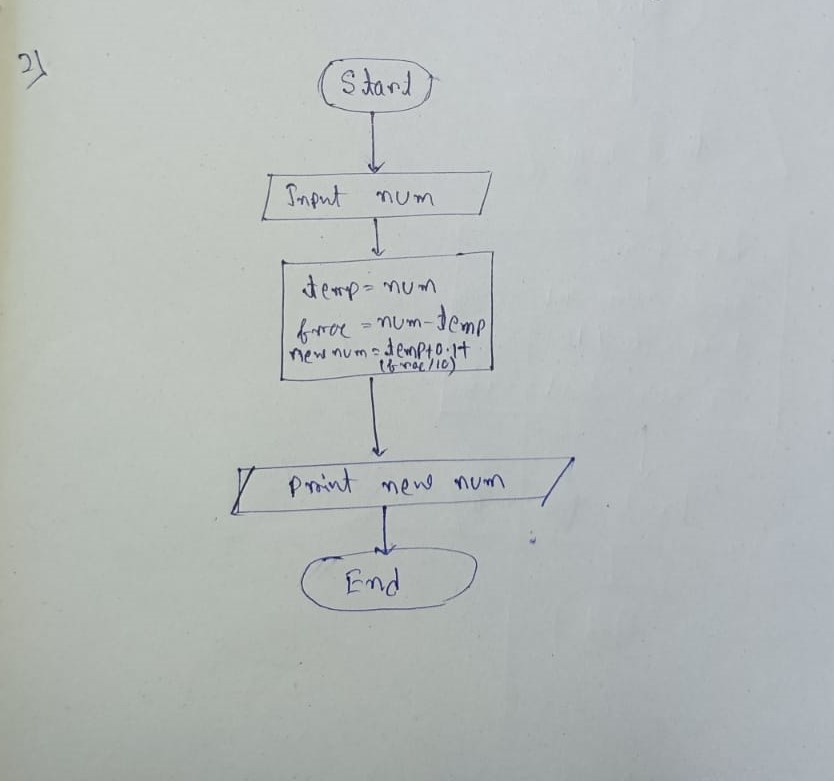 2)
Start
Input num
temp = num
frac = num - temp
new num = temp + 0.1 +
(frac/10)
Print new num
End